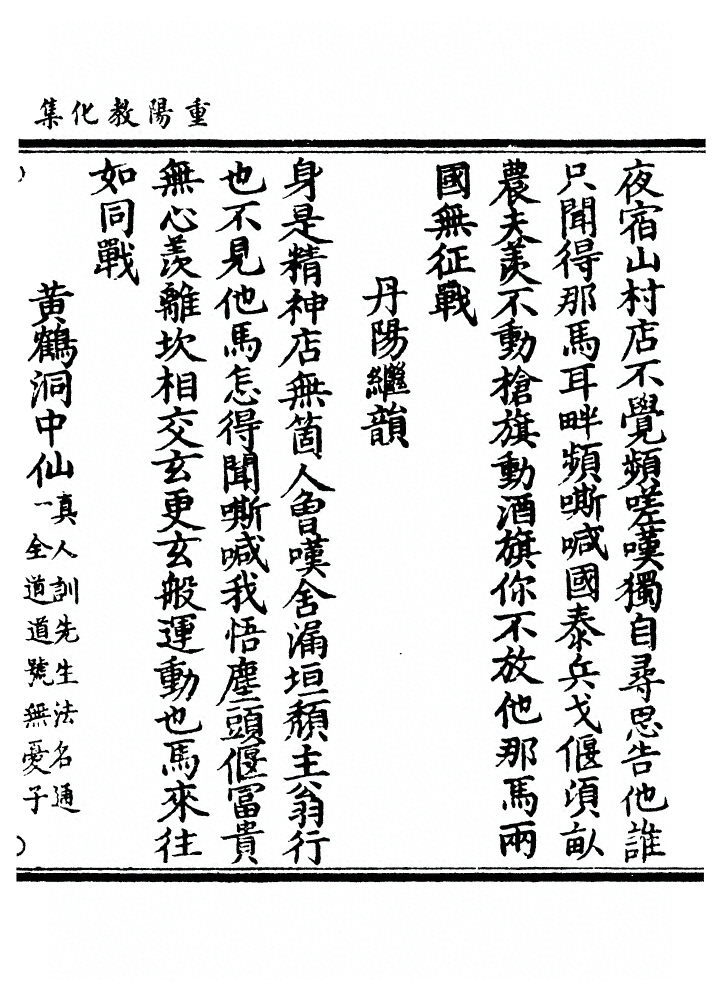 重陽教化集
夜宿山村店不覺頻嗟嘆獨自尋思告他誰
只聞得那馬耳畔頻嘶喊國泰兵戈偃湏畝
農夫羡不動搶旗動酒旗你不放他那馬兩
國無征戰
丹陽繼韻
身是精神店無箇人曾嘆舍漏垣頹主翁行
也不見他馬怎得聞嘶喊我悟塵頭偃冨貴
無心羡離坎相交玄更玄般運動也馬來往
如同戰
黃鶴洞中仙
真人訓先生法名通
一全道道號無憂子